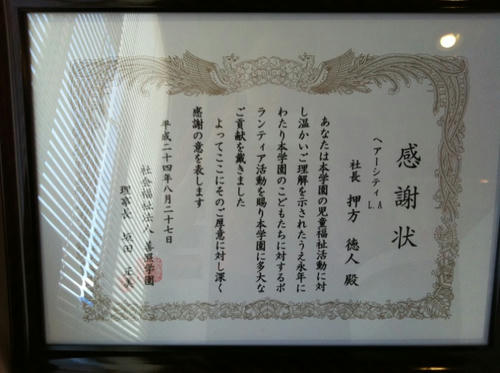 感謝状
ヘアーシティL.A
社長 押方 徳人 殿
あなたは本学園の児童福祉活動に対
し温かいご理解を示されたうえ永年に
わたり本学園のこどもたちに対するボ
ランティア活動を賜り本学園に多大な
ご貢献を戴きました
よってここにそのご厚意に対し深く
感謝の意を表します
平成二十四年八月二十七日
社会福祉法人 学園
理事長 垣田